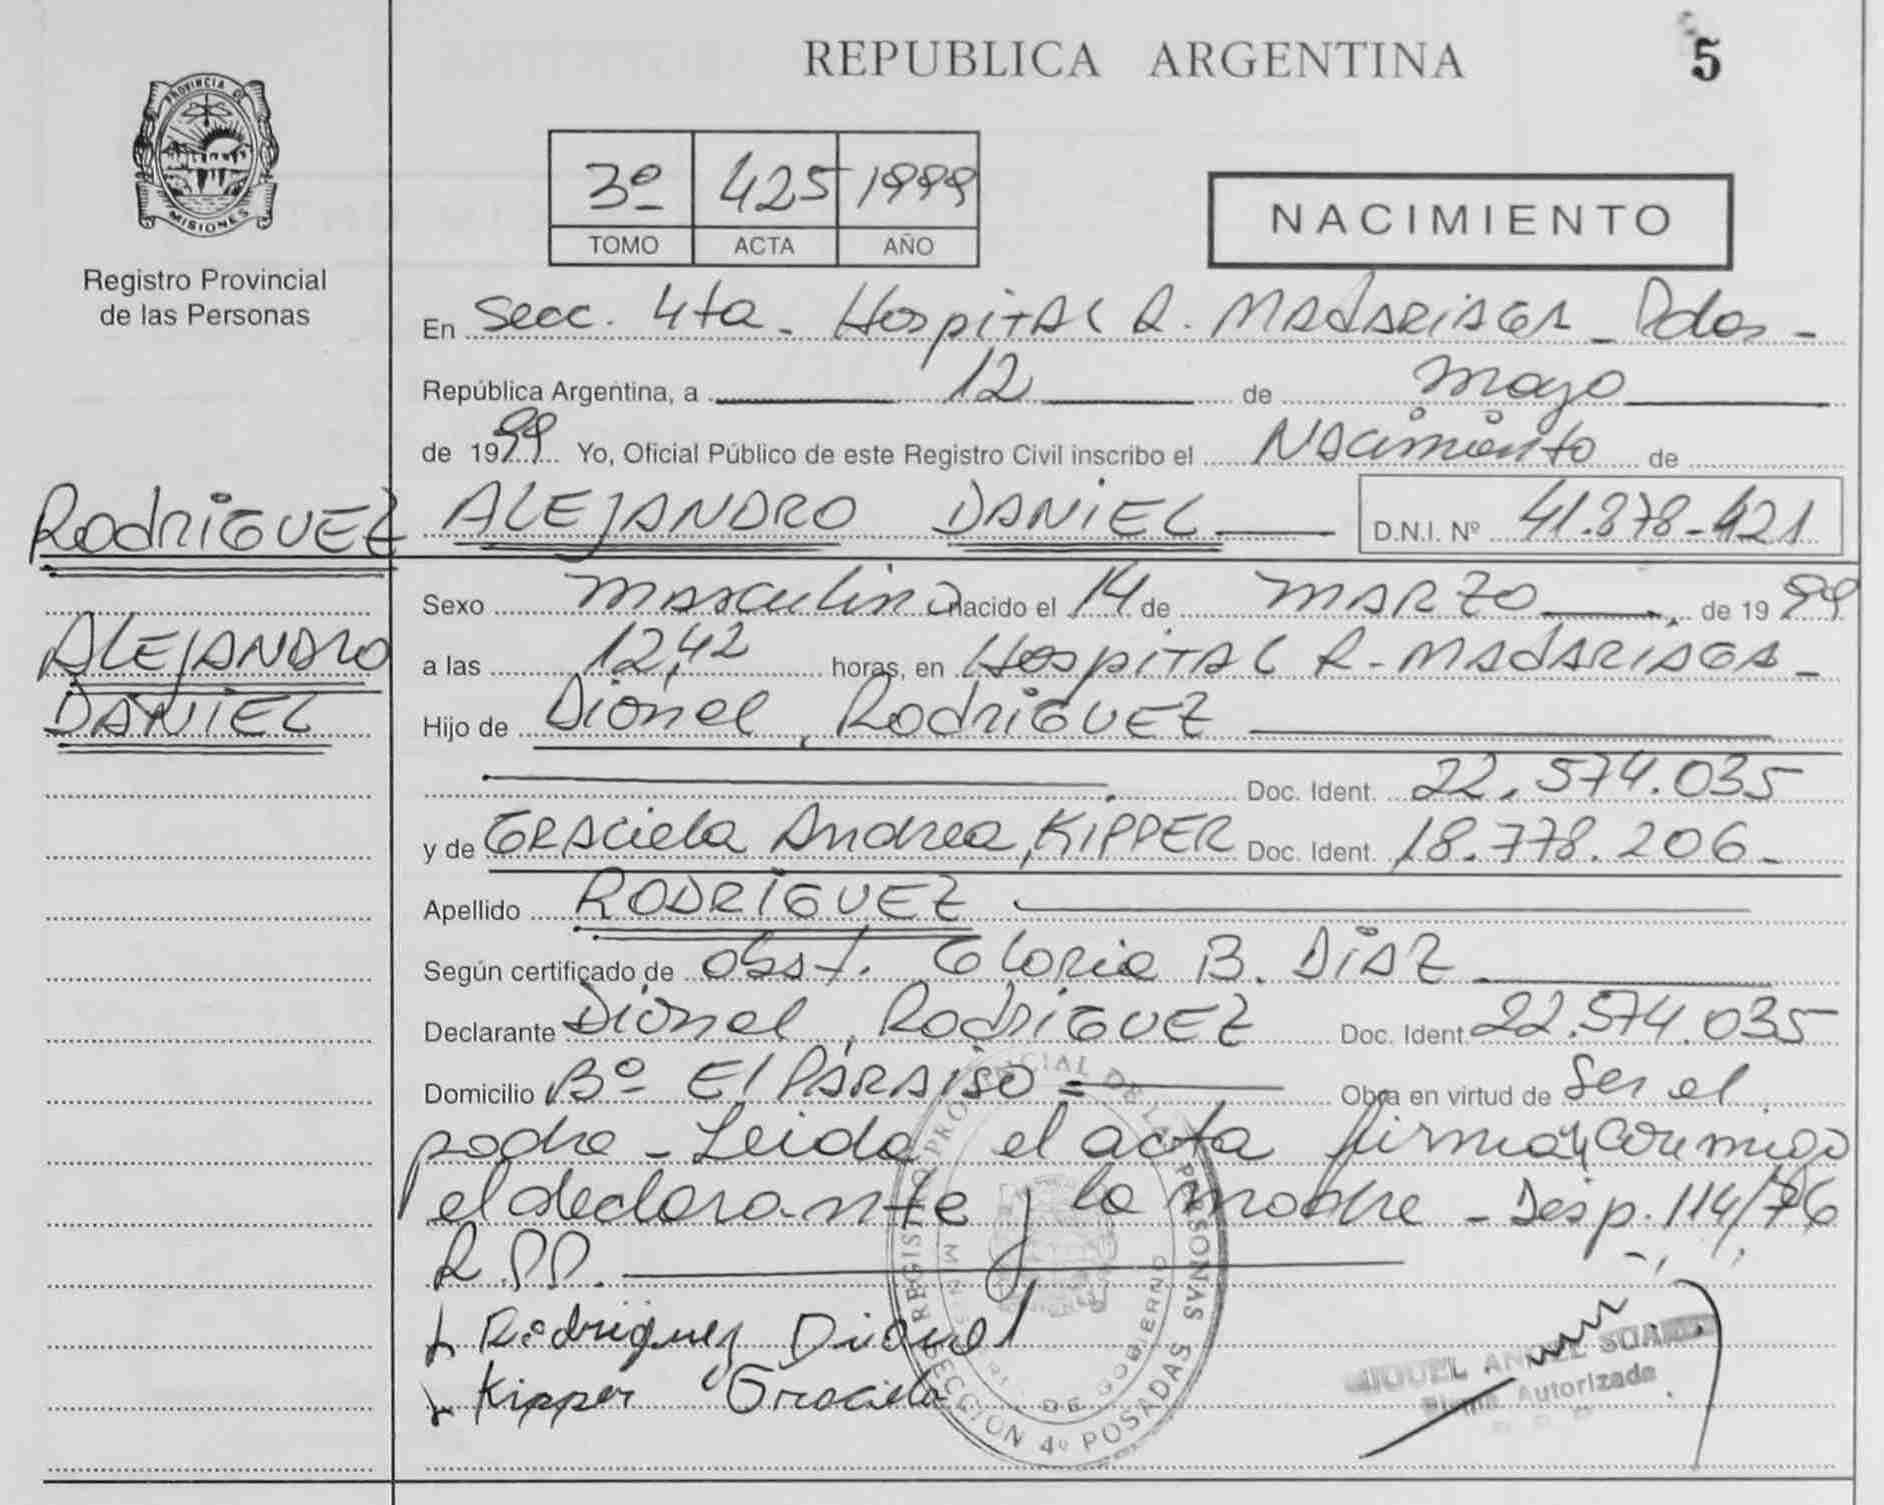 REPUBLICA ARGENTINA
5
PROVINCIA DE
MISIONES
Registro Provincial
de las Personas
3º 425 1999
TOMO ACTA AÑO
NACIMIENTO
En Secc. 4ta - Hospital R. Madariaga - Pdas -
República Argentina, a 12 de mayo
de 1999 Yo, Oficial Público de este Registro Civil inscribo el Nacimiento de
Rodriguez ALEJANDRO DANIEL D.N.I. Nº 41.878-421
Sexo masculino nacido el 14 de MARZO de 1999
ALEJANDRO
a las 12,42 horas, en Hospital R. Madariaga -
DANIEL
Hijo de Dionel, Rodriguez
Doc. Ident. 22.574.035
y de Graciela Andrea, KIPPER Doc. Ident. 18.778.206 -
Apellido RODRIGUEZ
Según certificado de obst. Gloria B. Diaz
Declarante Dionel, Rodriguez Doc. Ident. 22.574.035
Domicilio Bº El Paraiso = Obra en virtud de ser el
padre - Leida el acta firman conmigo
el declarante y la madre - Desp. 114/76
R.P.P.
Rodriguez Dionel
Kipper Graciela
REGISTRO PROVINCIAL DE LAS PERSONAS
DE GOBIERNO
SECCION 4º POSADAS
MIGUEL ANGEL
Firma Autorizada